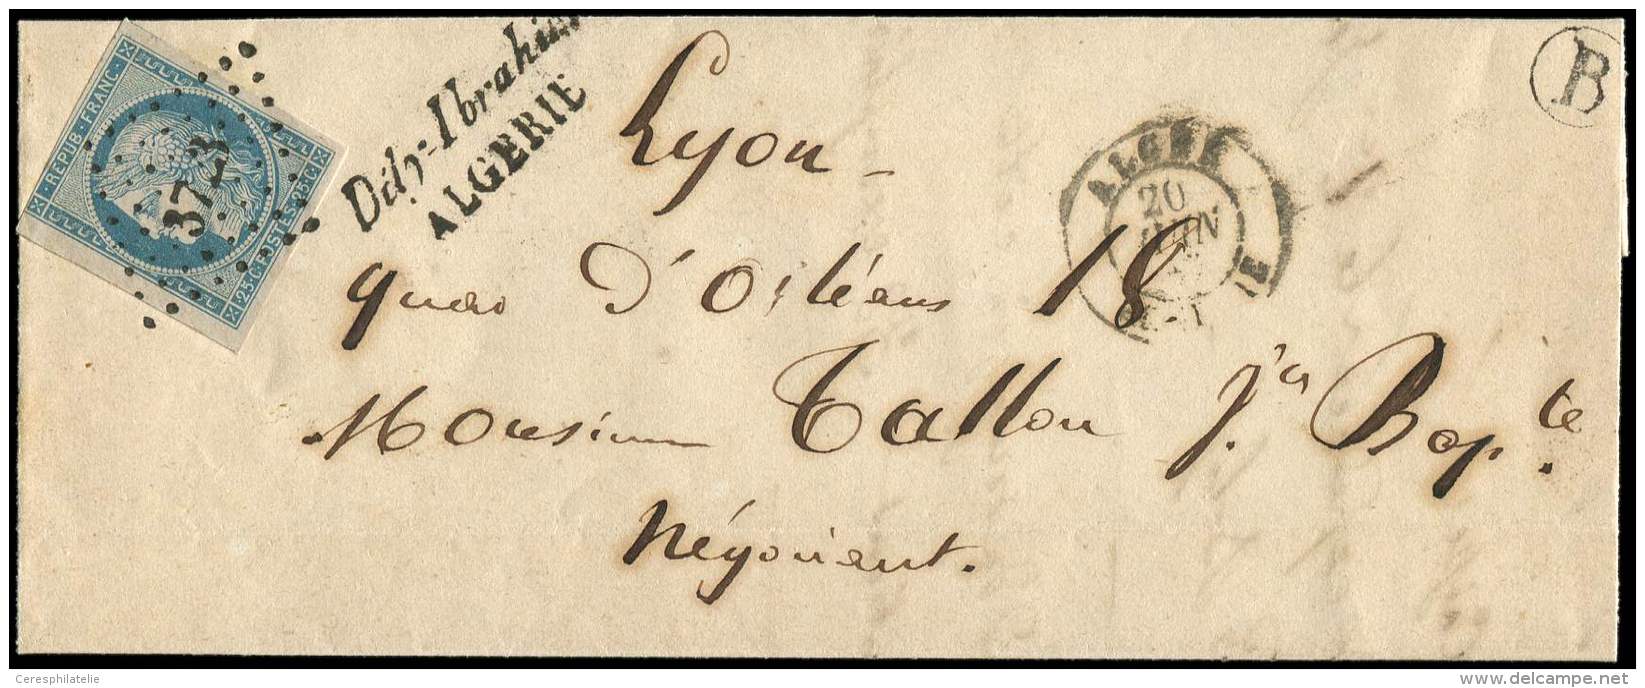 REPUB·FRANC·
25·C·POSTES·25·C·
3723
Dély-Ibrahim
ALGERIE
B
ALGER
20
JUIN
Lyon -
quai d'Orléans 18
Monsieur Tallon Jn Bapte.
Négociant.
Ceresphilatelie
www.delcampe.net